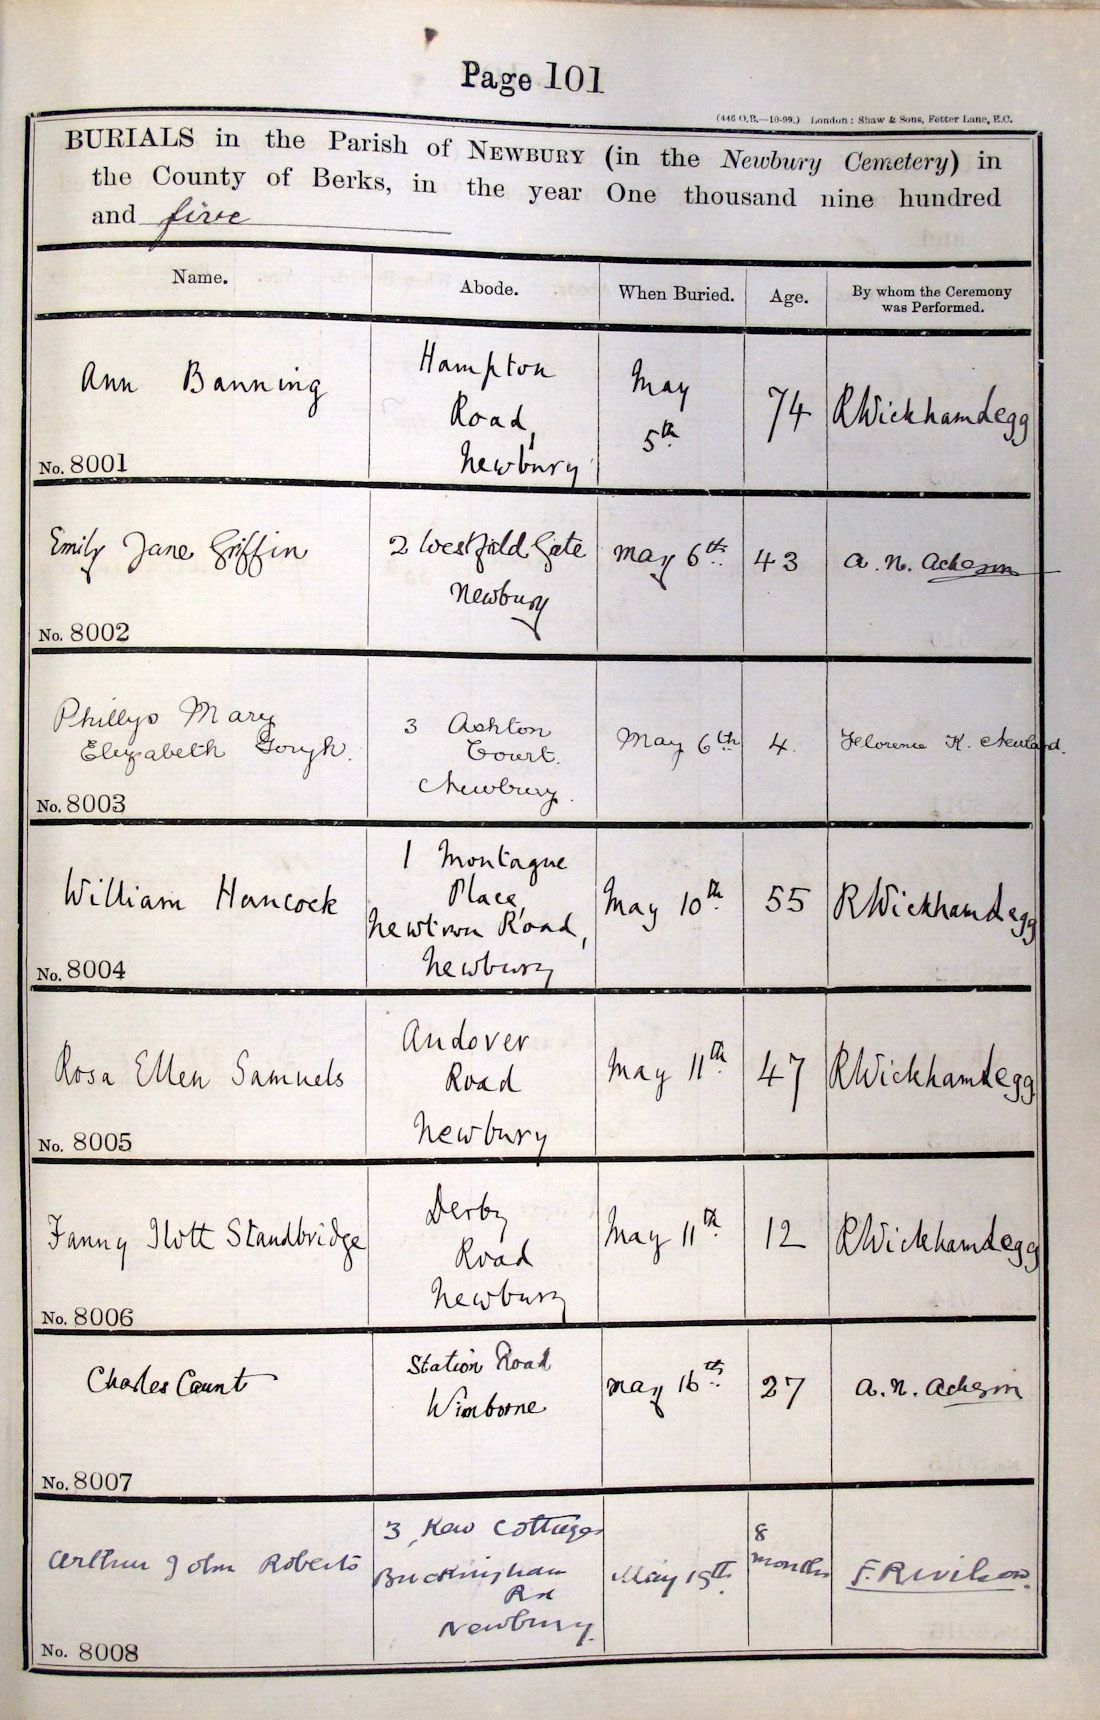 Page 101
(446 O.B.—10-99.) London: Shaw & Sons, Fetter Lane, E.C.
BURIALS in the Parish of NEWBURY (in the Newbury Cemetery) in
the County of Berks, in the year One thousand nine hundred
and five
Name. Abode. When Buried. Age. By whom the Ceremony
was Performed.
Ann Banning
No. 8001
Hampton
Road,
Newbury
May
5th
74
RWickhamLegg
Emily Jane Griffin
No. 8002
2 Westfield Gate
Newbury
May 6th
43
A. N. Acheson
Phillys Mary
Elizabeth Gough.
No. 8003
3 Ashton
Court.
Newbury.
May 6th
4.
Florence K. Newland.
William Hancock
No. 8004
1 Montague
Place,
Newtown Road,
Newbury
May 10th
55
RWickhamLegg
Rosa Ellen Samuels
No. 8005
Andover
Road
Newbury
May 11th
47
RWickhamLegg
Fanny Ilott Standbridge
No. 8006
Derby
Road
Newbury
May 11th
12
RWickhamLegg
Charles Caunt
No. 8007
Station Road
Wimborne
May 16th
27
A. N. Acheson
Arthur John Roberts
No. 8008
3, Kew Cottages
Buckingham
Rd
Newbury.
May 15th
8
months